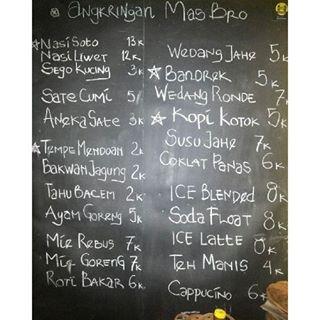 Angkringan Mas Bro
Nasi Soto 13K
Nasi Liwet 12K
Sego Kucing 3K
Sate Cumi 5K
Aneka Sate 3K
Tempe Mendoan 2K
Bakwan Jagung 2K
Tahu Bacem 2K
Ayam Goreng 5K
Mie Rebus 7K
Mie Goreng 7K
Roti Bakar 6K
Wedang Jahe 5K
Bandrek 5K
Wedang Ronde 7K
Kopi Kotok 5K
Susu Jahe 7K
Coklat Panas 6K
Ice Blended 8K
Soda Float 8K
Ice Latte 8K
Teh Manis 4K
Cappucino 6K